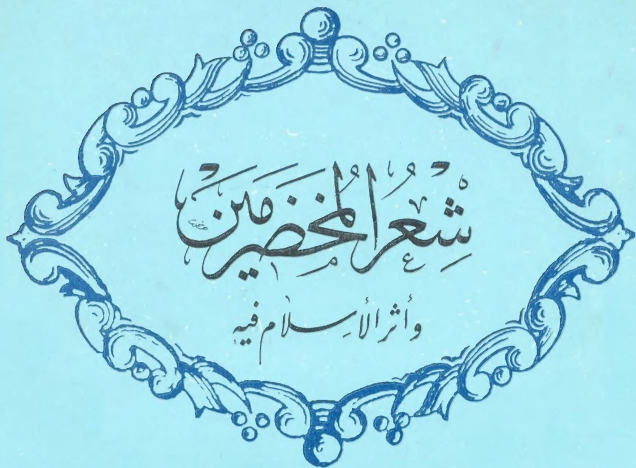 شِعْرُ المُخَضْرَمين
وأثر الأسلام فيه